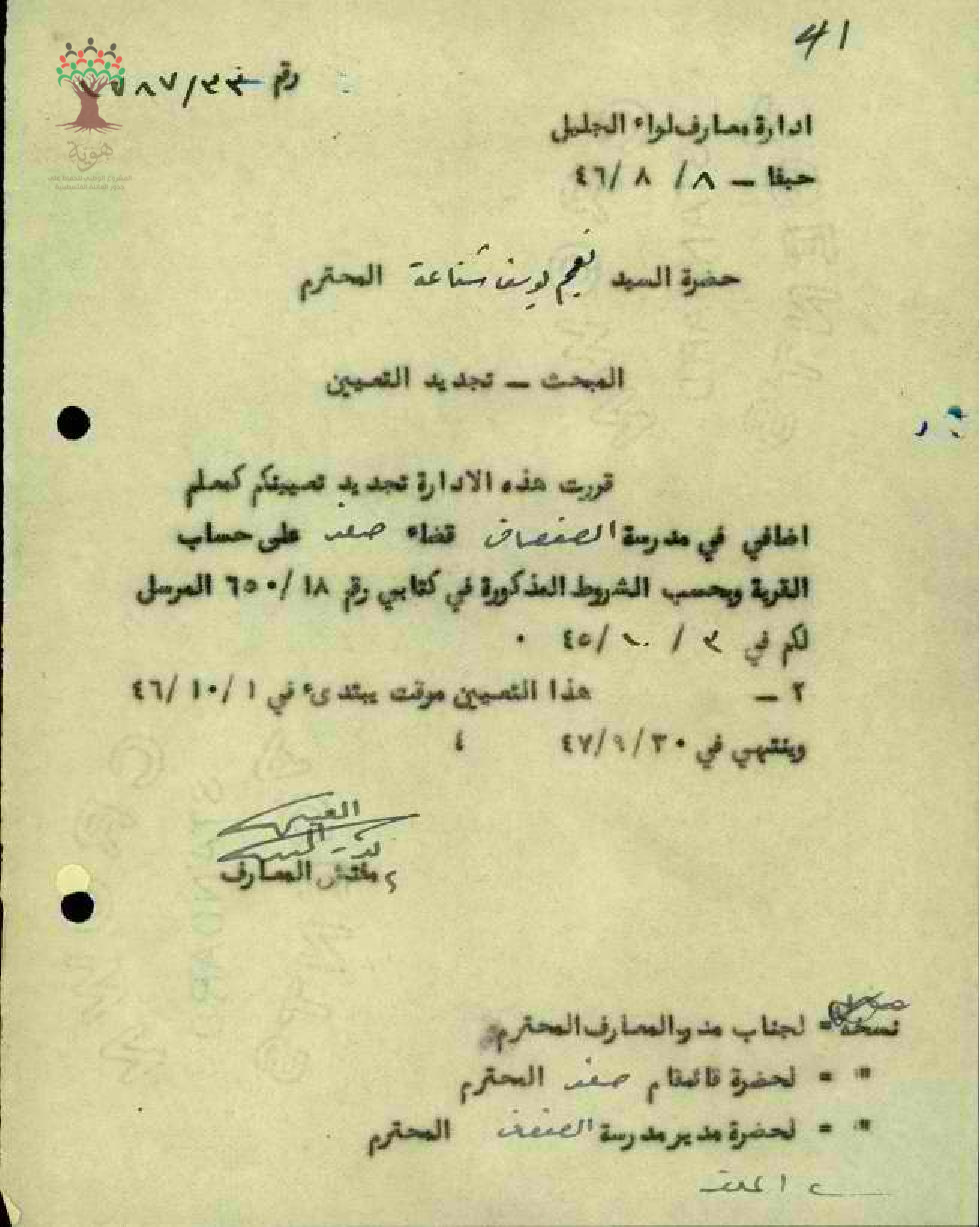 41
رقم ٧٧٨٧/٣٣
هوية
ادارة معارف لواء الجليل
حيفا – ٨/ ٨ /٤٦
حضرة السيد نعيم يوسف شناعة المحترم
المبحث – تجديد التعيين
قررت هذه الادارة تجديد تعيينكم كمعلم
اضافي في مدرسة الصفصاف قضاء صفد على حساب
القرية وبحسب الشروط المذكورة في كتابي رقم ٦٥٠/١٨ المرسل
لكم في ٣ / ١٠ /٤٥ ٠
٢ – هذا التعيين موقت يبتدىء في ١ /١٠ /٤٦
وينتهي في ٤٧/٩/٣٠
مفتش المعارف
نسخة = لجناب مدير المعارف المحترم
" = لحضرة قائمقام صفد المحترم
" = لحضرة مدير مدرسة الصفصاف المحترم